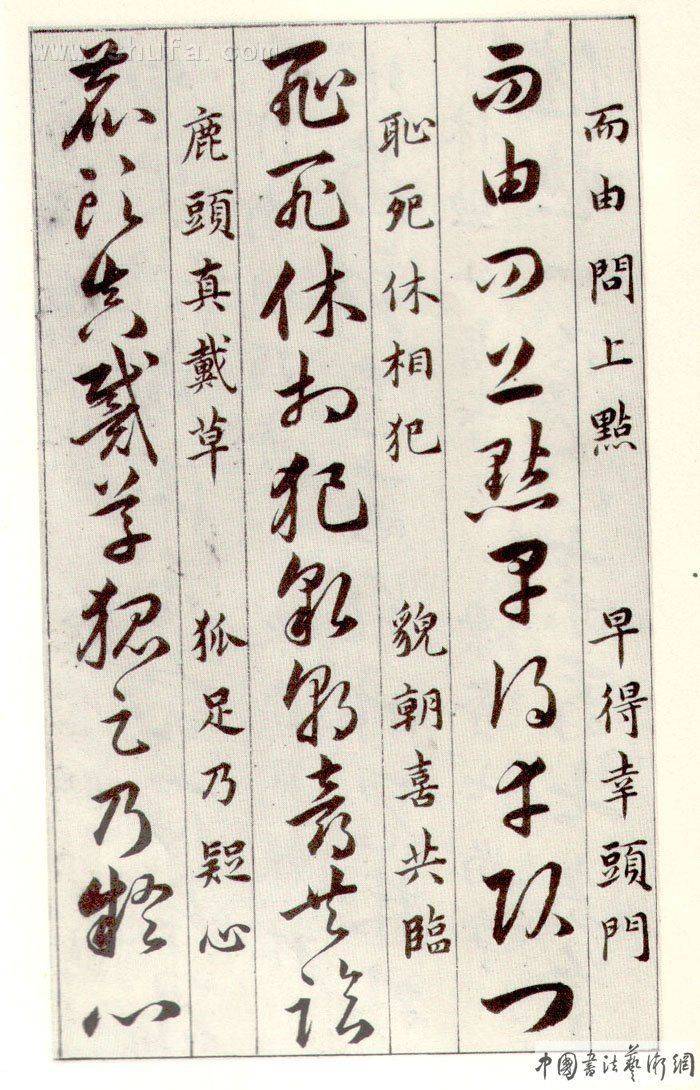 而由問上點 早得幸頭門
而由問上點早得幸頭門
恥死休相犯 貌朝喜共臨
恥死休相犯貌朝喜共臨
鹿頭真戴草 狐足乃疑心
鹿頭真戴草狐足乃疑心
中國書法藝術網